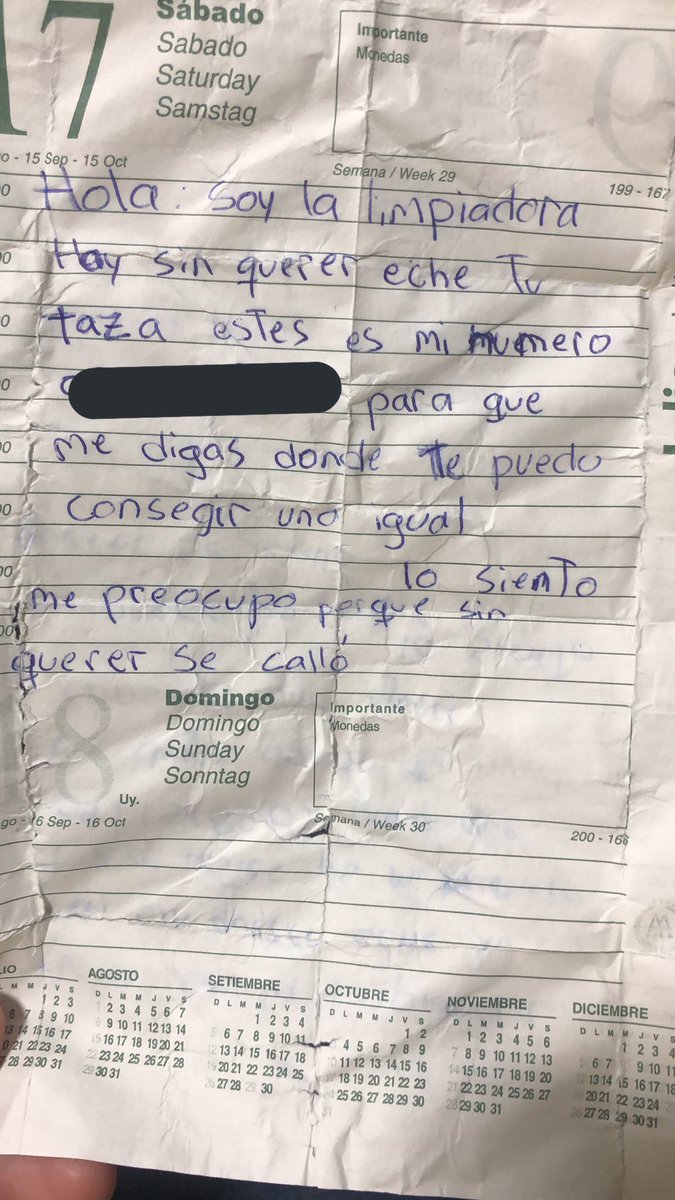 17
Sábado
Sabado
Saturday
Samstag
Importante
Monedas
o - 15 Sep - 15 Oct
Semana / Week 29
199 - 167
Hola: Soy la limpiadora
Hoy sin querer eche Tu
taza estes es mi numero
para que
me digas donde te puedo
consegir uno igual
lo siento
me preocupo porque sin
querer se calló
18
Domingo
Domingo
Sunday
Sonntag
Uy.
Importante
Monedas
go - 16 Sep - 16 Oct
Semana / Week 30
200 - 166
LIO
AGOSTO
SETIEMBRE
OCTUBRE
NOVIEMBRE
DICIEMBRE
L M M J V S
D L M M J V S
D L M M J V S
D L M M J V S
D L M M J V S
D L M M J V S
1 2 3
1 2 3 4 5 6 7
1 2 3 4
1 2
1 2 3 4 5 6
1 2 3 4
6 7 8 9 10
8 9 10 11 12 13 14
5 6 7 8 9 10 11
3 4 5 6 7 8 9
7 8 9 10 11 12 13
5 6 7 8 9 10
13 14 15 16 17
15 16 17 18 19 20 21
12 13 14 15 16 17 18
10 11 12 13 14 15 16
14 15 16 17 18 19 20
12 13 14 15 16 17
20 21 22 23 24
22 23 24 25 26 27 28
19 20 21 22 23 24 25
17 18 19 20 21 22 23
21 22 23 24 25 26 27
19 20 21 22 23 24
27 28 29 30 31
29 30 31
26 27 28 29 30
24 25 26 27 28 29 30
28 29 30 31
26 27 28 29 30 31
31